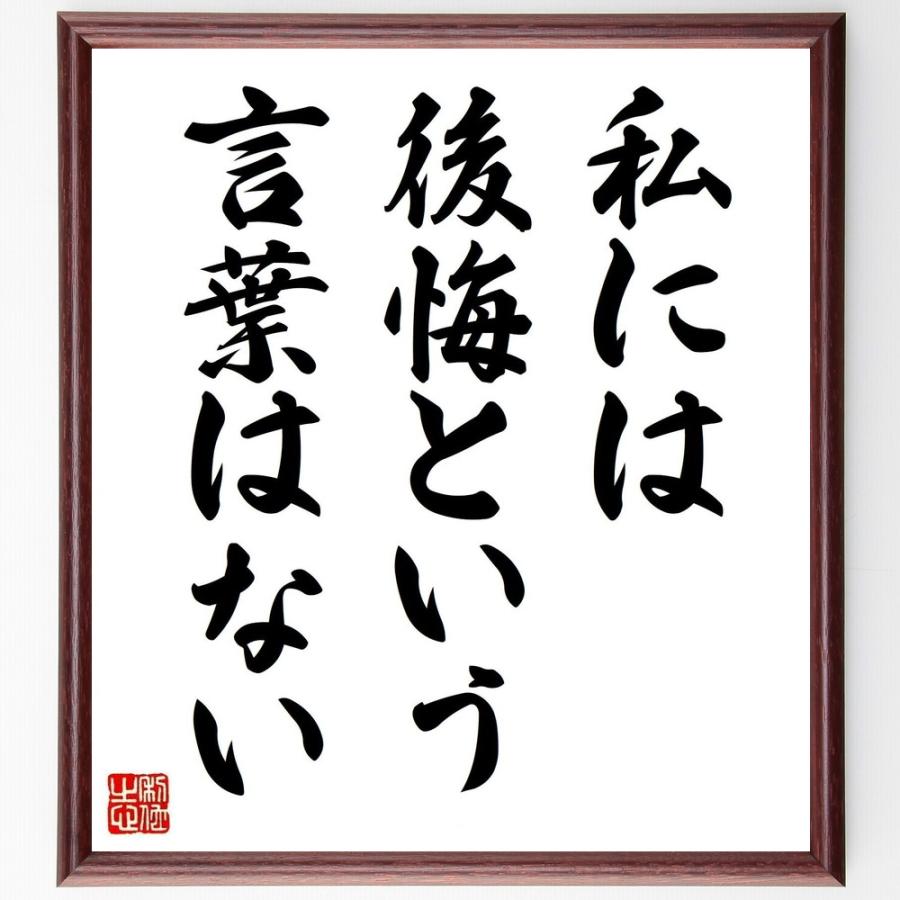 私には
後悔という
言葉はない